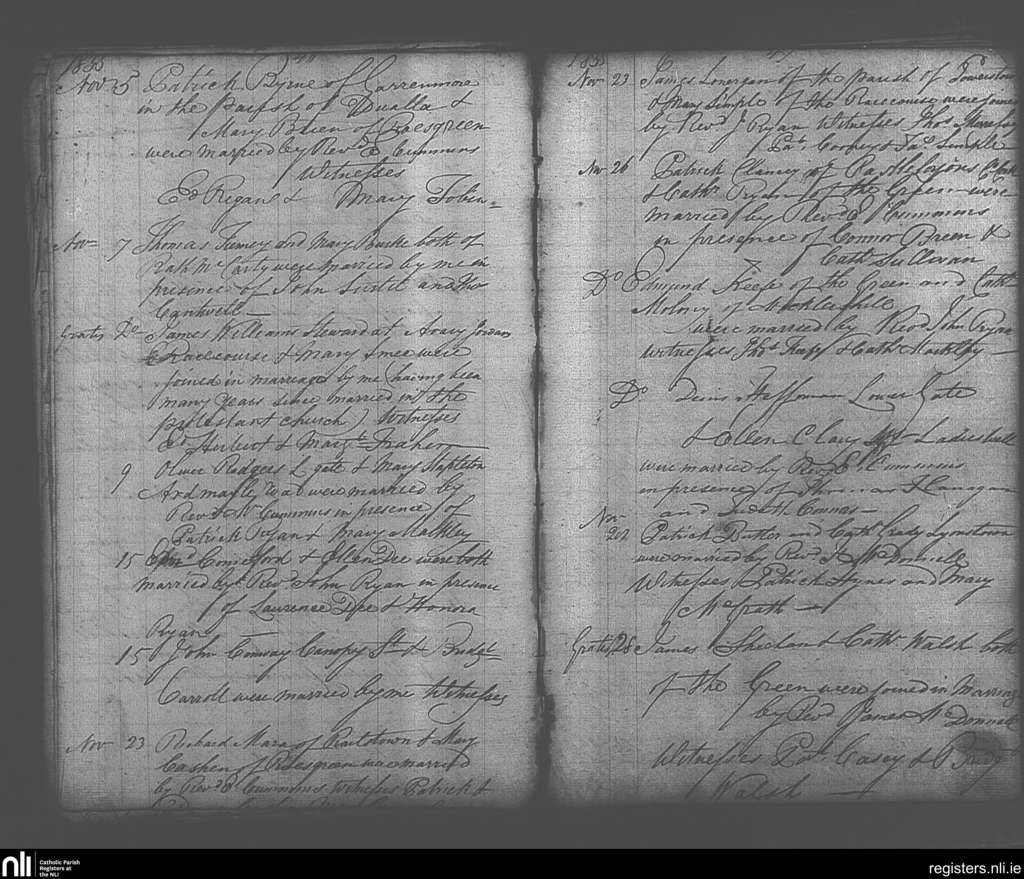 1835
Nov 25 Patrick Byrne of Carrenmore
in the Parish of Dualla &
Mary Breen of Roesgreen
were married by Revd E Cummins
Witnesses
Ed Regan & Mary Tobin
Nov 7 Thomas and Mary Burke both of
Rath McCarty were married by me in
presence of John and Tho
Cantwell
Gratis Do James Williams Steward at Avary Jordans
Racecourse & Mary were
joined in marriage by me (having been
many years since married in the
protestant church) Witnesses
Ed Herbert & Margt Fraher
9 Oliver Rodgers L gate & Mary Stapleton
Ardmayle, were married by
Revd Mr Cummins in presence of
Patrick Ryan & Mary
15 Comerford & Ellen Dee were both
married by Revd John Ryan in presence
of Laurence Dee & Honora
Ryan
15 John Conway Canopy St & Bridgt
Carroll were married by me Witnesses
Nov 23 Richard Mara of Railstown & Mary
Cashen of were married
by Revd E Cummins Witnesses Patrick &
1835
Nov 23 James Lonergan of the parish of
& Mary Simple of the Racecourse were joined
by Revd J Ryan Witnesses Thos
Pat Cooper & Jas Simple
Nov 26 Patrick Clancy of
& Cathr Ryan of the Green were
married by Revd E Cummins
in presence of Connor Breen &
Cath Sullivan
Do Edmund Keefe of the Green and Cath
Molony of
were married by Revd John Ryan
witnesses Thos Trapp & Cath
Do Denis Heffernan Lower Gate
& Ellen
were married by Revd E Cummins
in presence of Thomas Flanagan
and Judith Connors
Nov
Patrick Butler and Cath Grady Lyonstown
were married by Revd J McDonnell
Witnesses Patrick Hynes and Mary
McGrath
Gratis 28 James Sheehan & Cathr Walsh both
of the Green were joined in Marriage
by Revd James McDonnell
Witnesses Pat Casey & Bridgt
Walsh
nli
Catholic Parish
Registers at
the NLI
registers.nli.ie